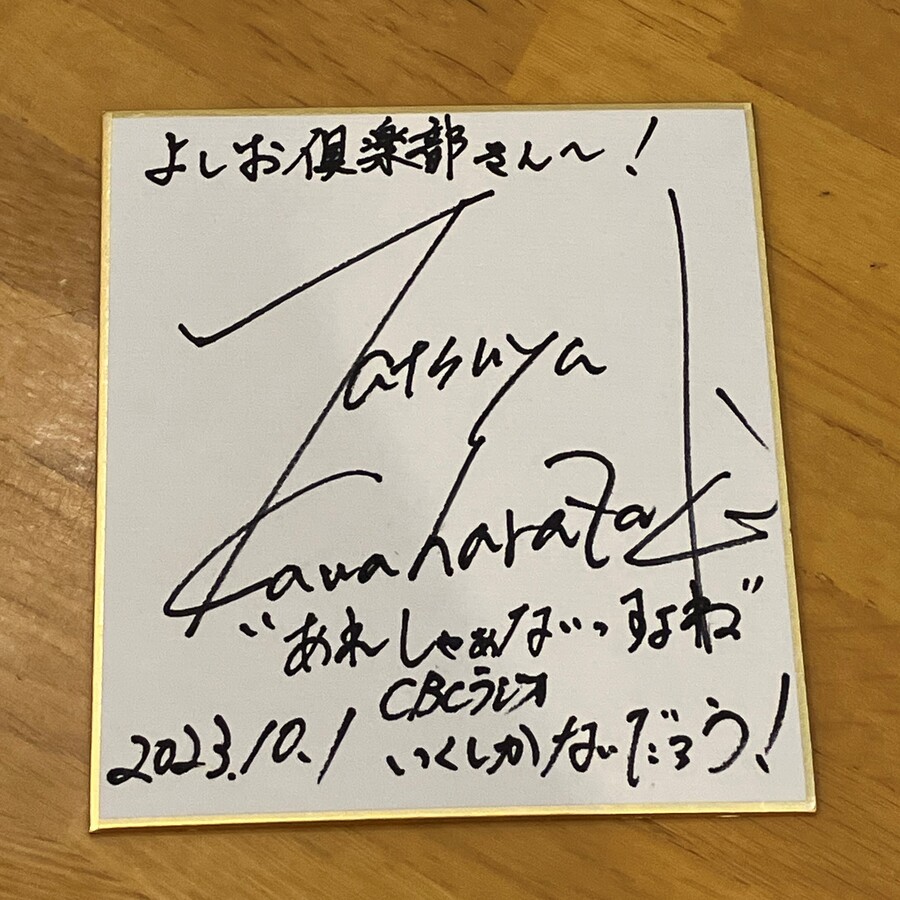 よしお倶楽部さん〜!
Tatsuya
Kawaharazaki
"あれしゃあないっすよね"
CBCラジオ
2023.10.1 いくしかないだろう!